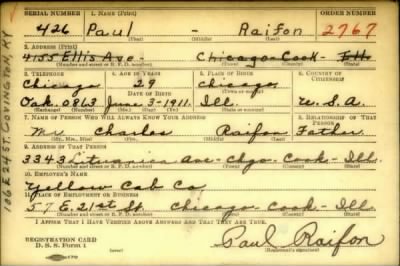 SERIAL NUMBER 1. NAME (Print) ORDER NUMBER
426 Paul - Raifon 2767
(First) (Middle) (Last)
2. ADDRESS (Print)
4155 Ellis Ave. Chicago - Cook - Ills
(Number and street or R. F. D. number) (Town) (County) (State)
3. TELEPHONE 4. AGE IN YEARS 5. PLACE OF BIRTH 6. COUNTRY OF CITIZENSHIP
Chicago 29 Chicago
DATE OF BIRTH
Oak. 0863 June - 3 - 1911. Ill. U.S.A.
7. NAME OF PERSON WHO WILL ALWAYS KNOW YOUR ADDRESS 8. RELATIONSHIP OF THAT PERSON
Mr. Charles Raifon Father
(Mr., Mrs., Miss) (First) (Middle) (Last)
9. ADDRESS OF THAT PERSON
3343 Lituanica Ave - Chgo - Cook - Ill.
(Number and street or R. F. D. number) (Town) (County) (State)
10. EMPLOYER'S NAME
Yellow Cab Co
11. PLACE OF EMPLOYMENT OR BUSINESS
57 E. 21st St. Chicago - Cook - Ill.
(Number and street or R. F. D. number) (Town) (County) (State)
I AFFIRM THAT I HAVE VERIFIED ABOVE ANSWERS AND THAT THEY ARE TRUE.
REGISTRATION CARD
D. S. S. Form 1
Paul Raifon
(Registrant's signature)
100 E 24 ST. COVINGTON, KY